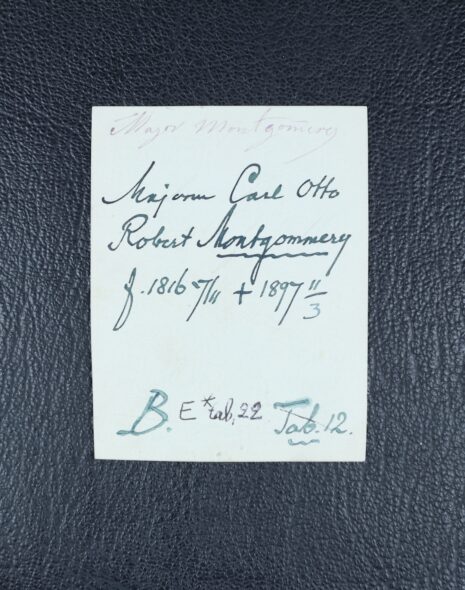 Major Montgomery
Majoren Carl Otto
Robert Montgommery
f. 1816 5/11 + 1897 11/3
B. E* tab. 22 Tab. 12.